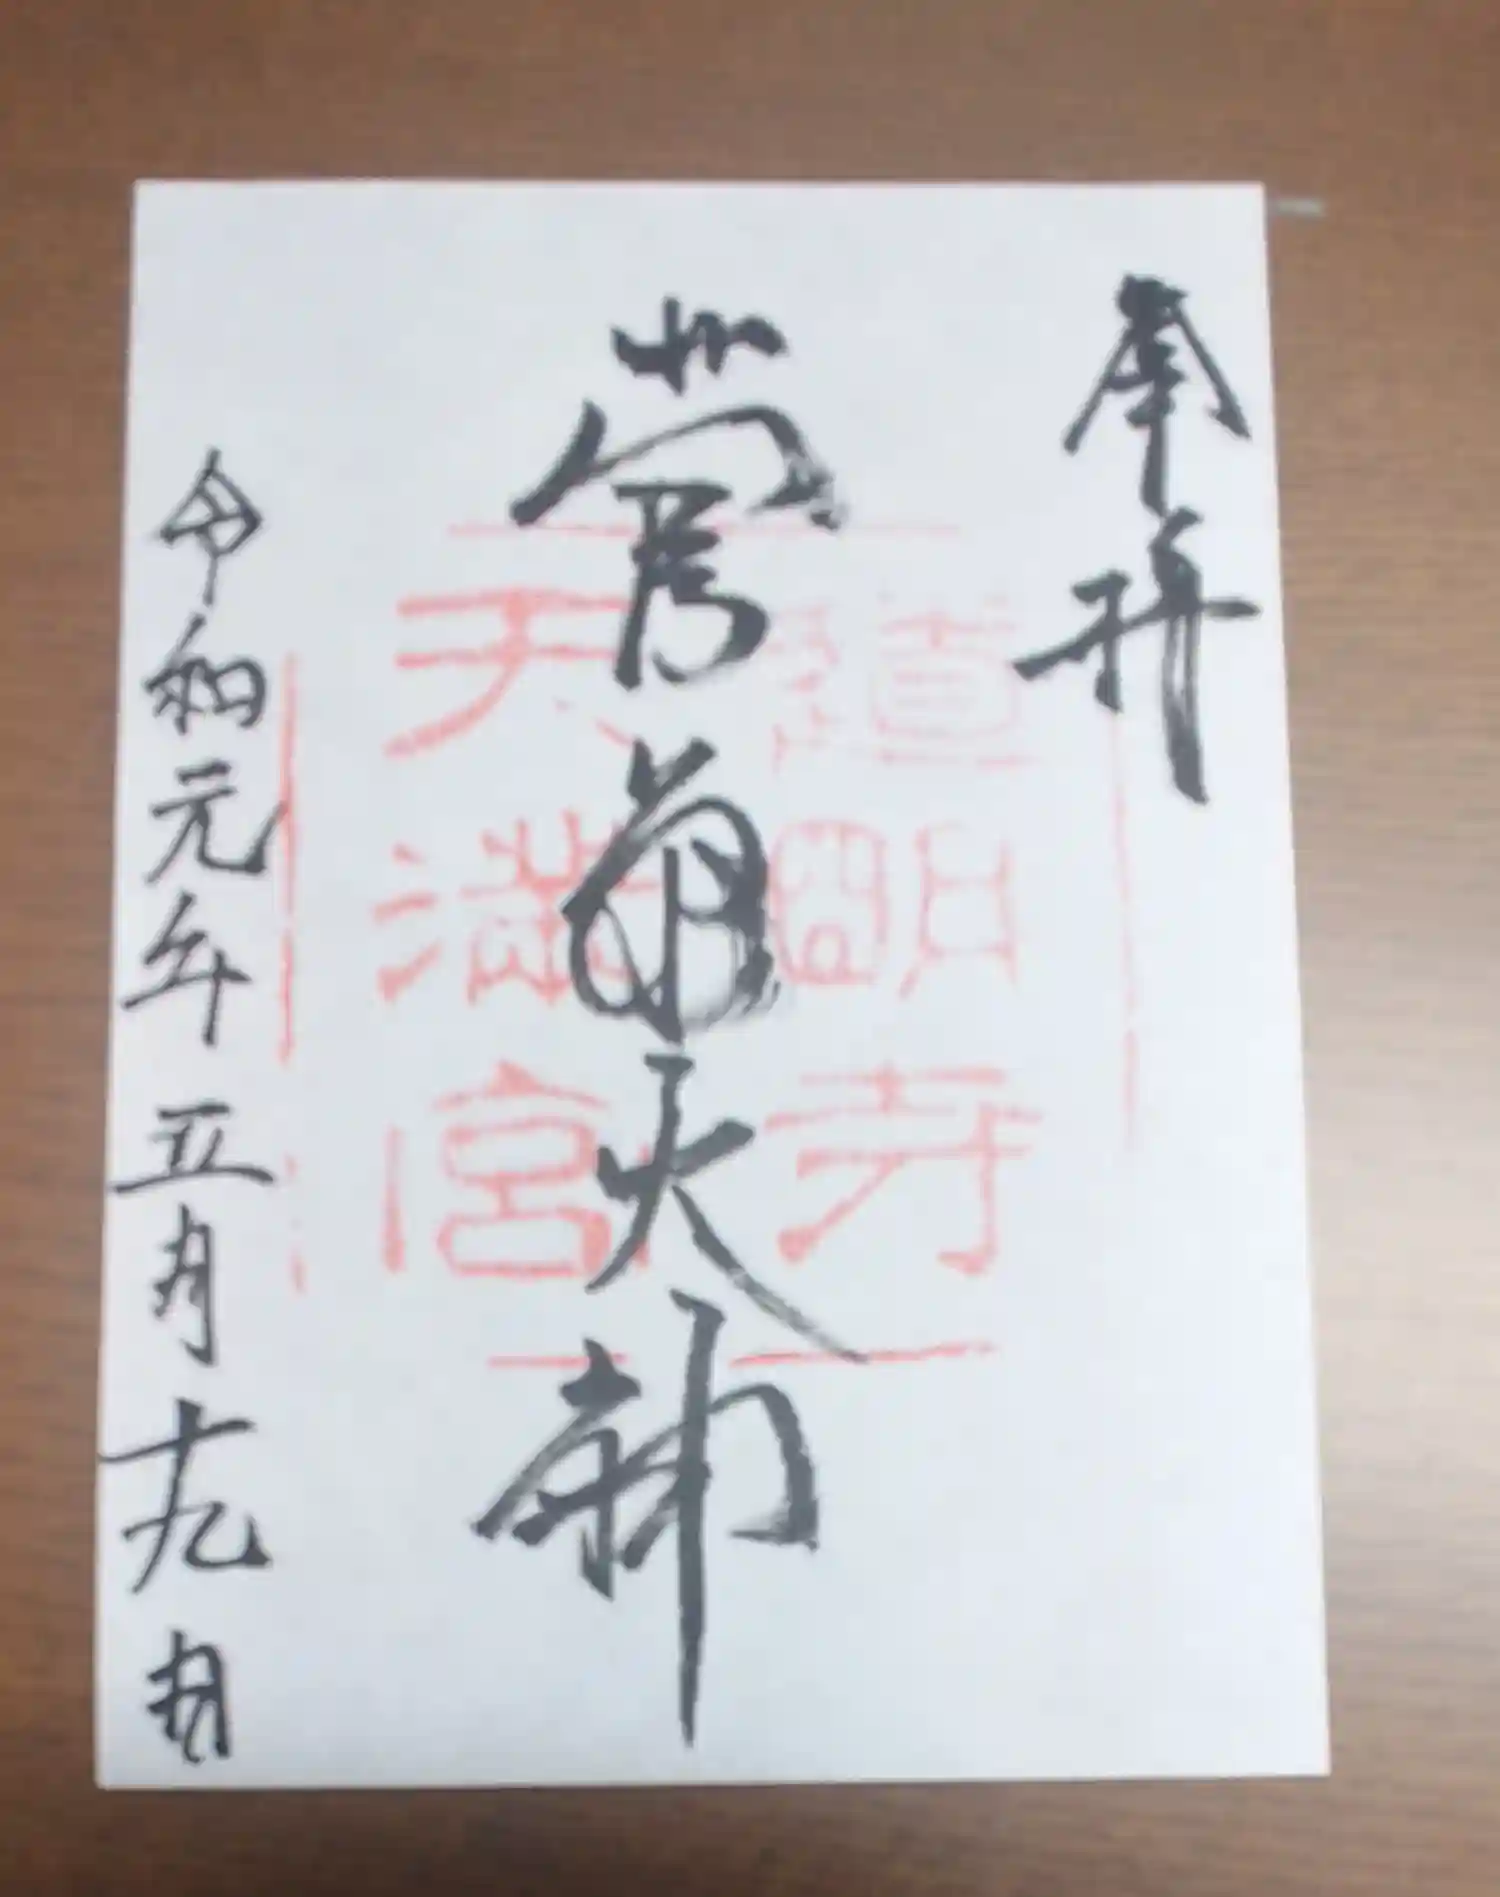 奉拝
菅原大神
道明寺
天満宮
令和元年五月十九日